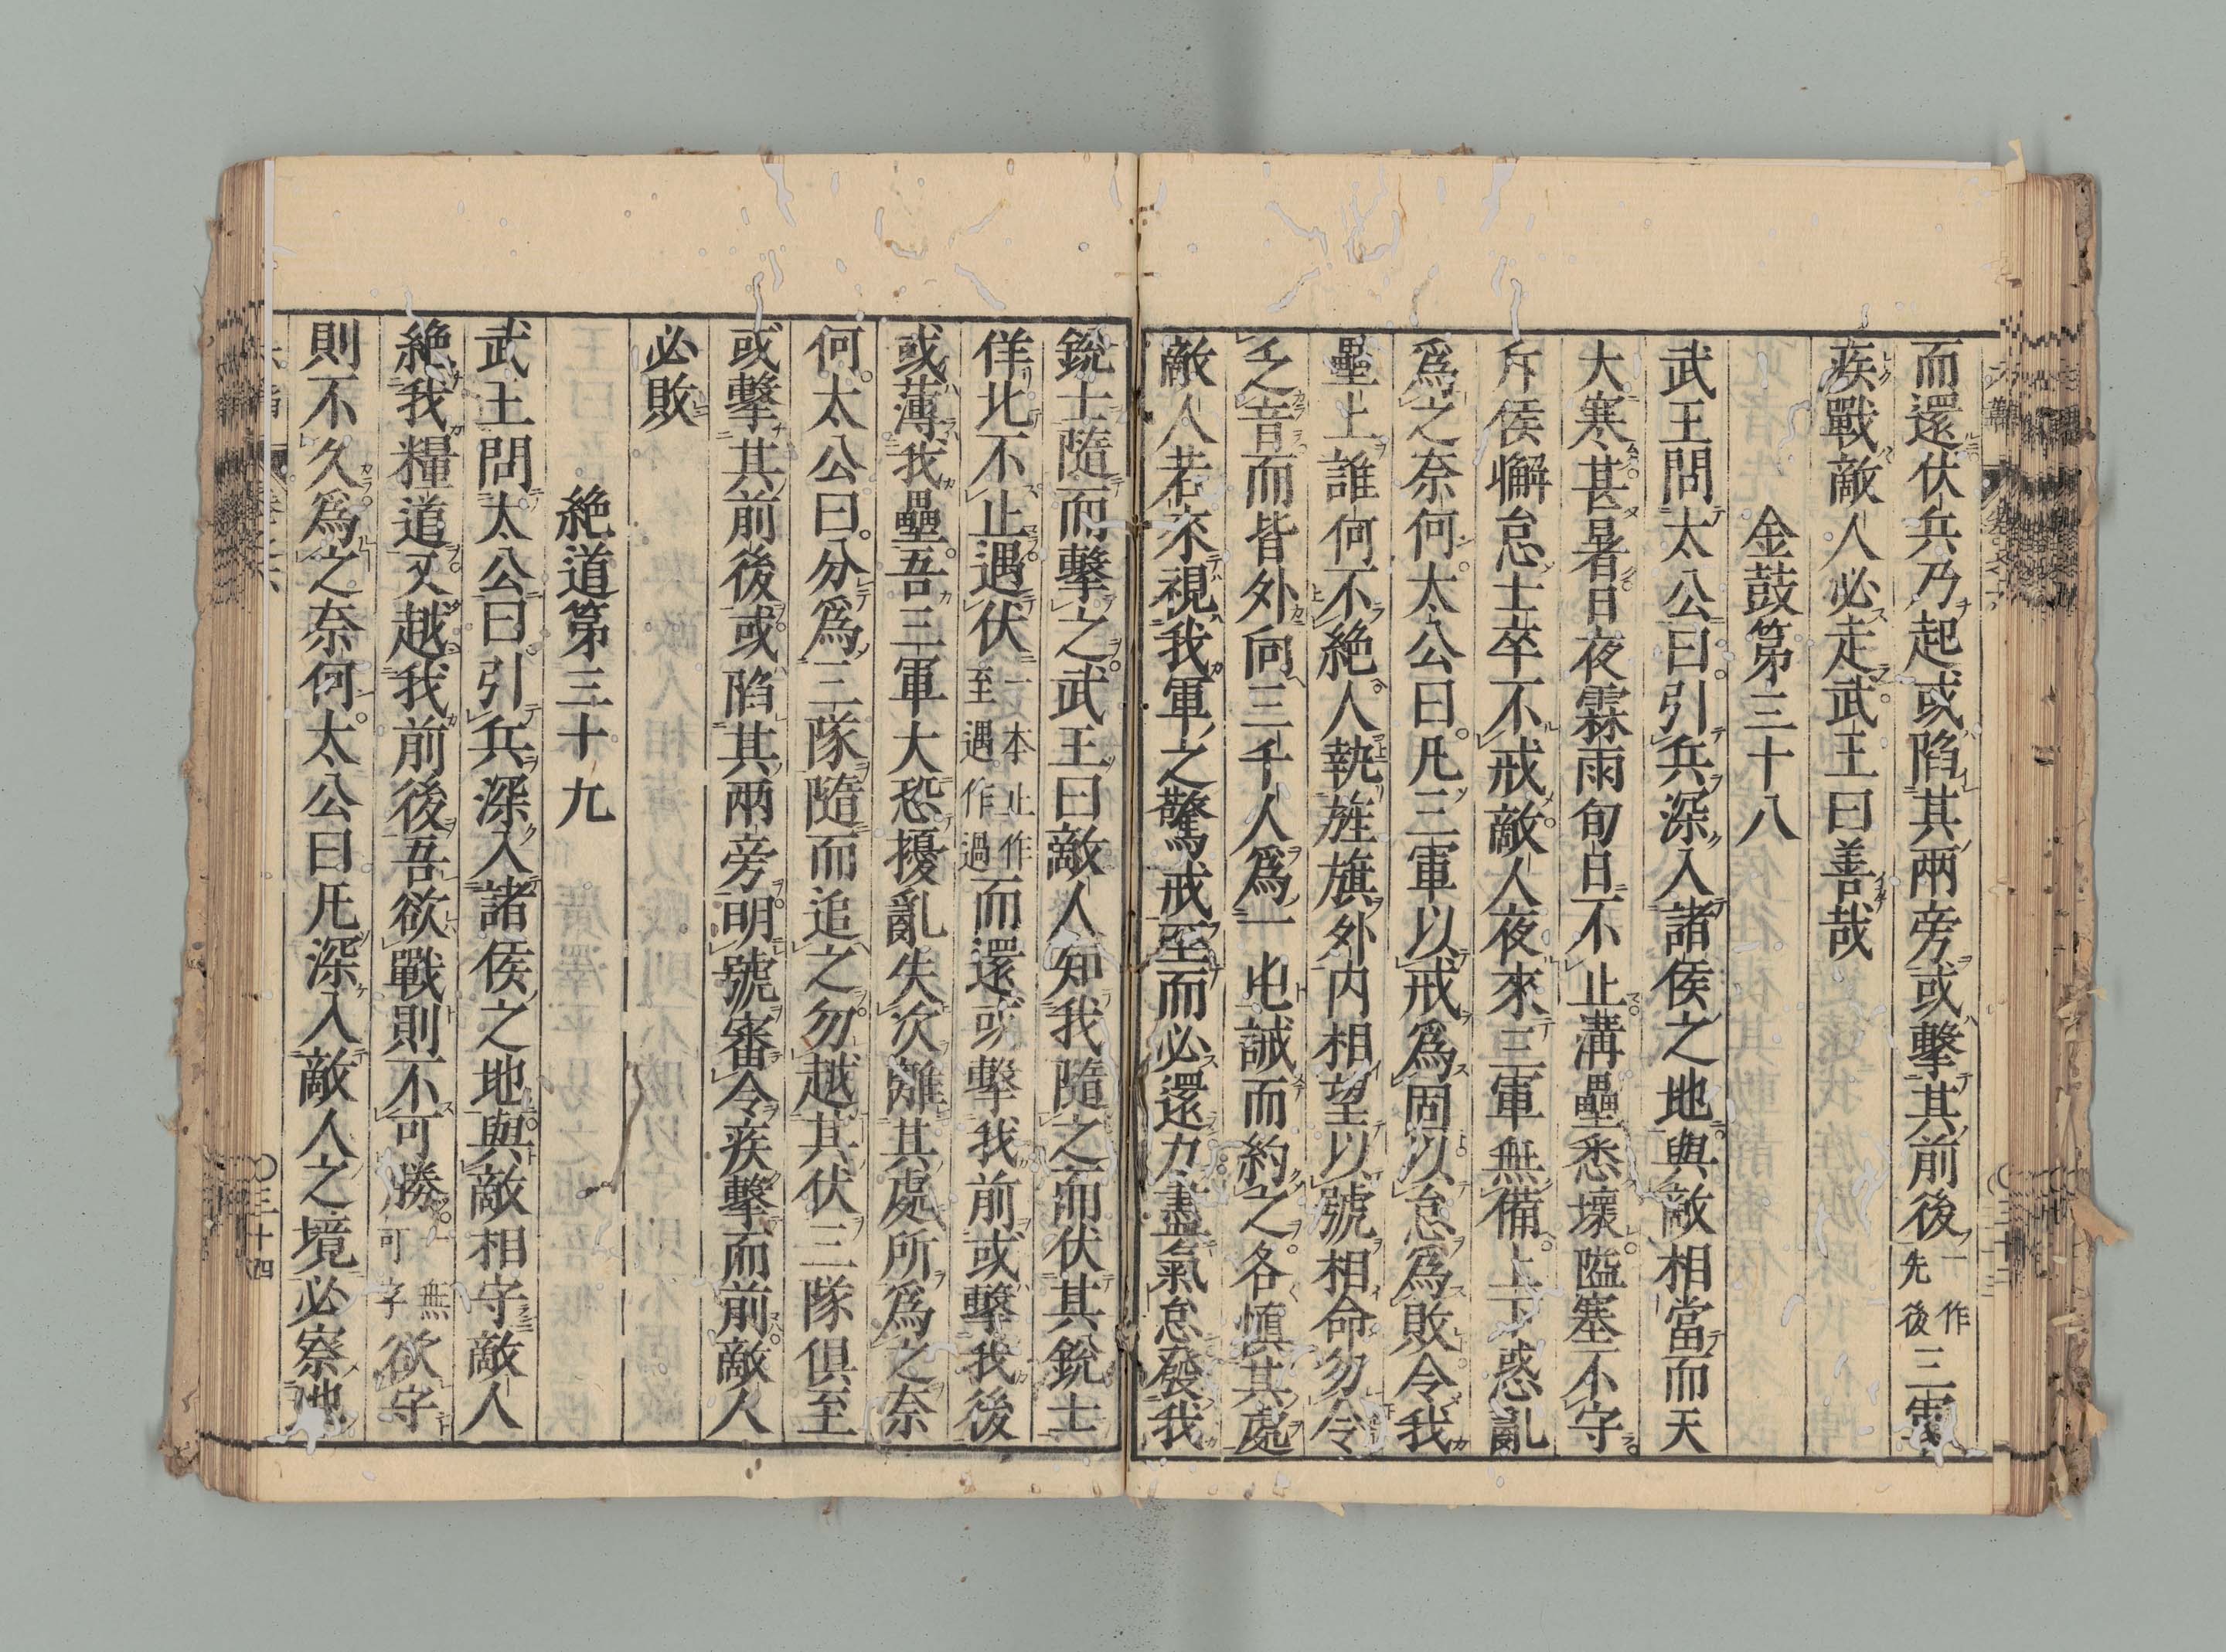 而還伏兵乃起或陷其兩旁或擊其前後一作先後三軍
疾戰敵人必走武王曰善哉
金鼓第三十八
武王問太公曰引兵深入諸侯之地與敵相當而天
大寒甚暑日夜霖雨旬日不止溝壘悉壞隘塞不守
斥侯懈怠士卒不戒敵人夜來三軍無備上下惑亂
爲之奈何太公曰凡三軍以戒爲固以怠爲敗令我
壘上誰何不絶人執旌旗外内相望以號相命勿令
乏音而皆外向三千人爲一屯誡而約之各愼其處
敵人若來視我軍之驚戒至而必還力盡氣怠發我
銳士隨而擊之武王曰敵人知我隨之而伏其銳士
佯北不止遇伏一本止作至遇作過而還或擊我前或擊我後
或薄我壘吾三軍大恐擾亂失次離其處所爲之奈
何太公曰分爲三隊隨而追之勿越其伏三隊俱至
或擊其前後或陷其兩旁明號審令疾擊而前敵人
必敗
絶道第三十九
武王問太公曰引兵深入諸侯之地與敵相守敵人
絶我糧道又越我前後吾欲戰則不可勝一無可字欲守
則不久爲之奈何太公曰凡深入敵人之境必察地
三十四